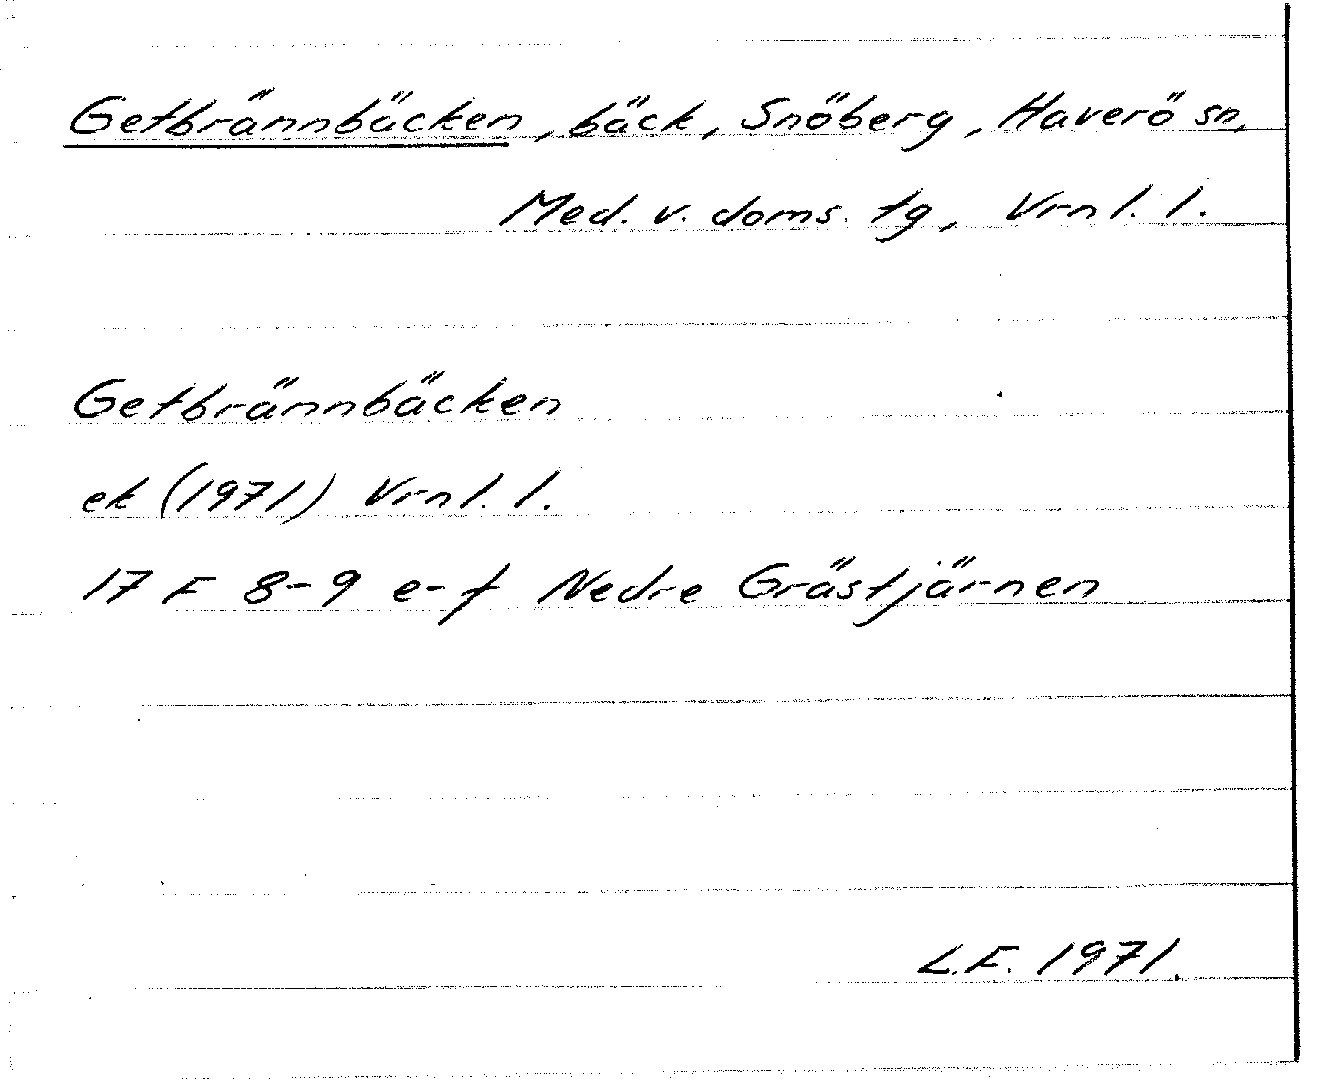 Getbrännbäcken, bäck, Snöberg, Haverö sn,
Med. v. doms. tg, Vrnl. l.
Getbrännbäcken
ek (1971) Vrnl. l.
17 F 8-9 e-f Nedre Grästjärnen
L.F. 1971.